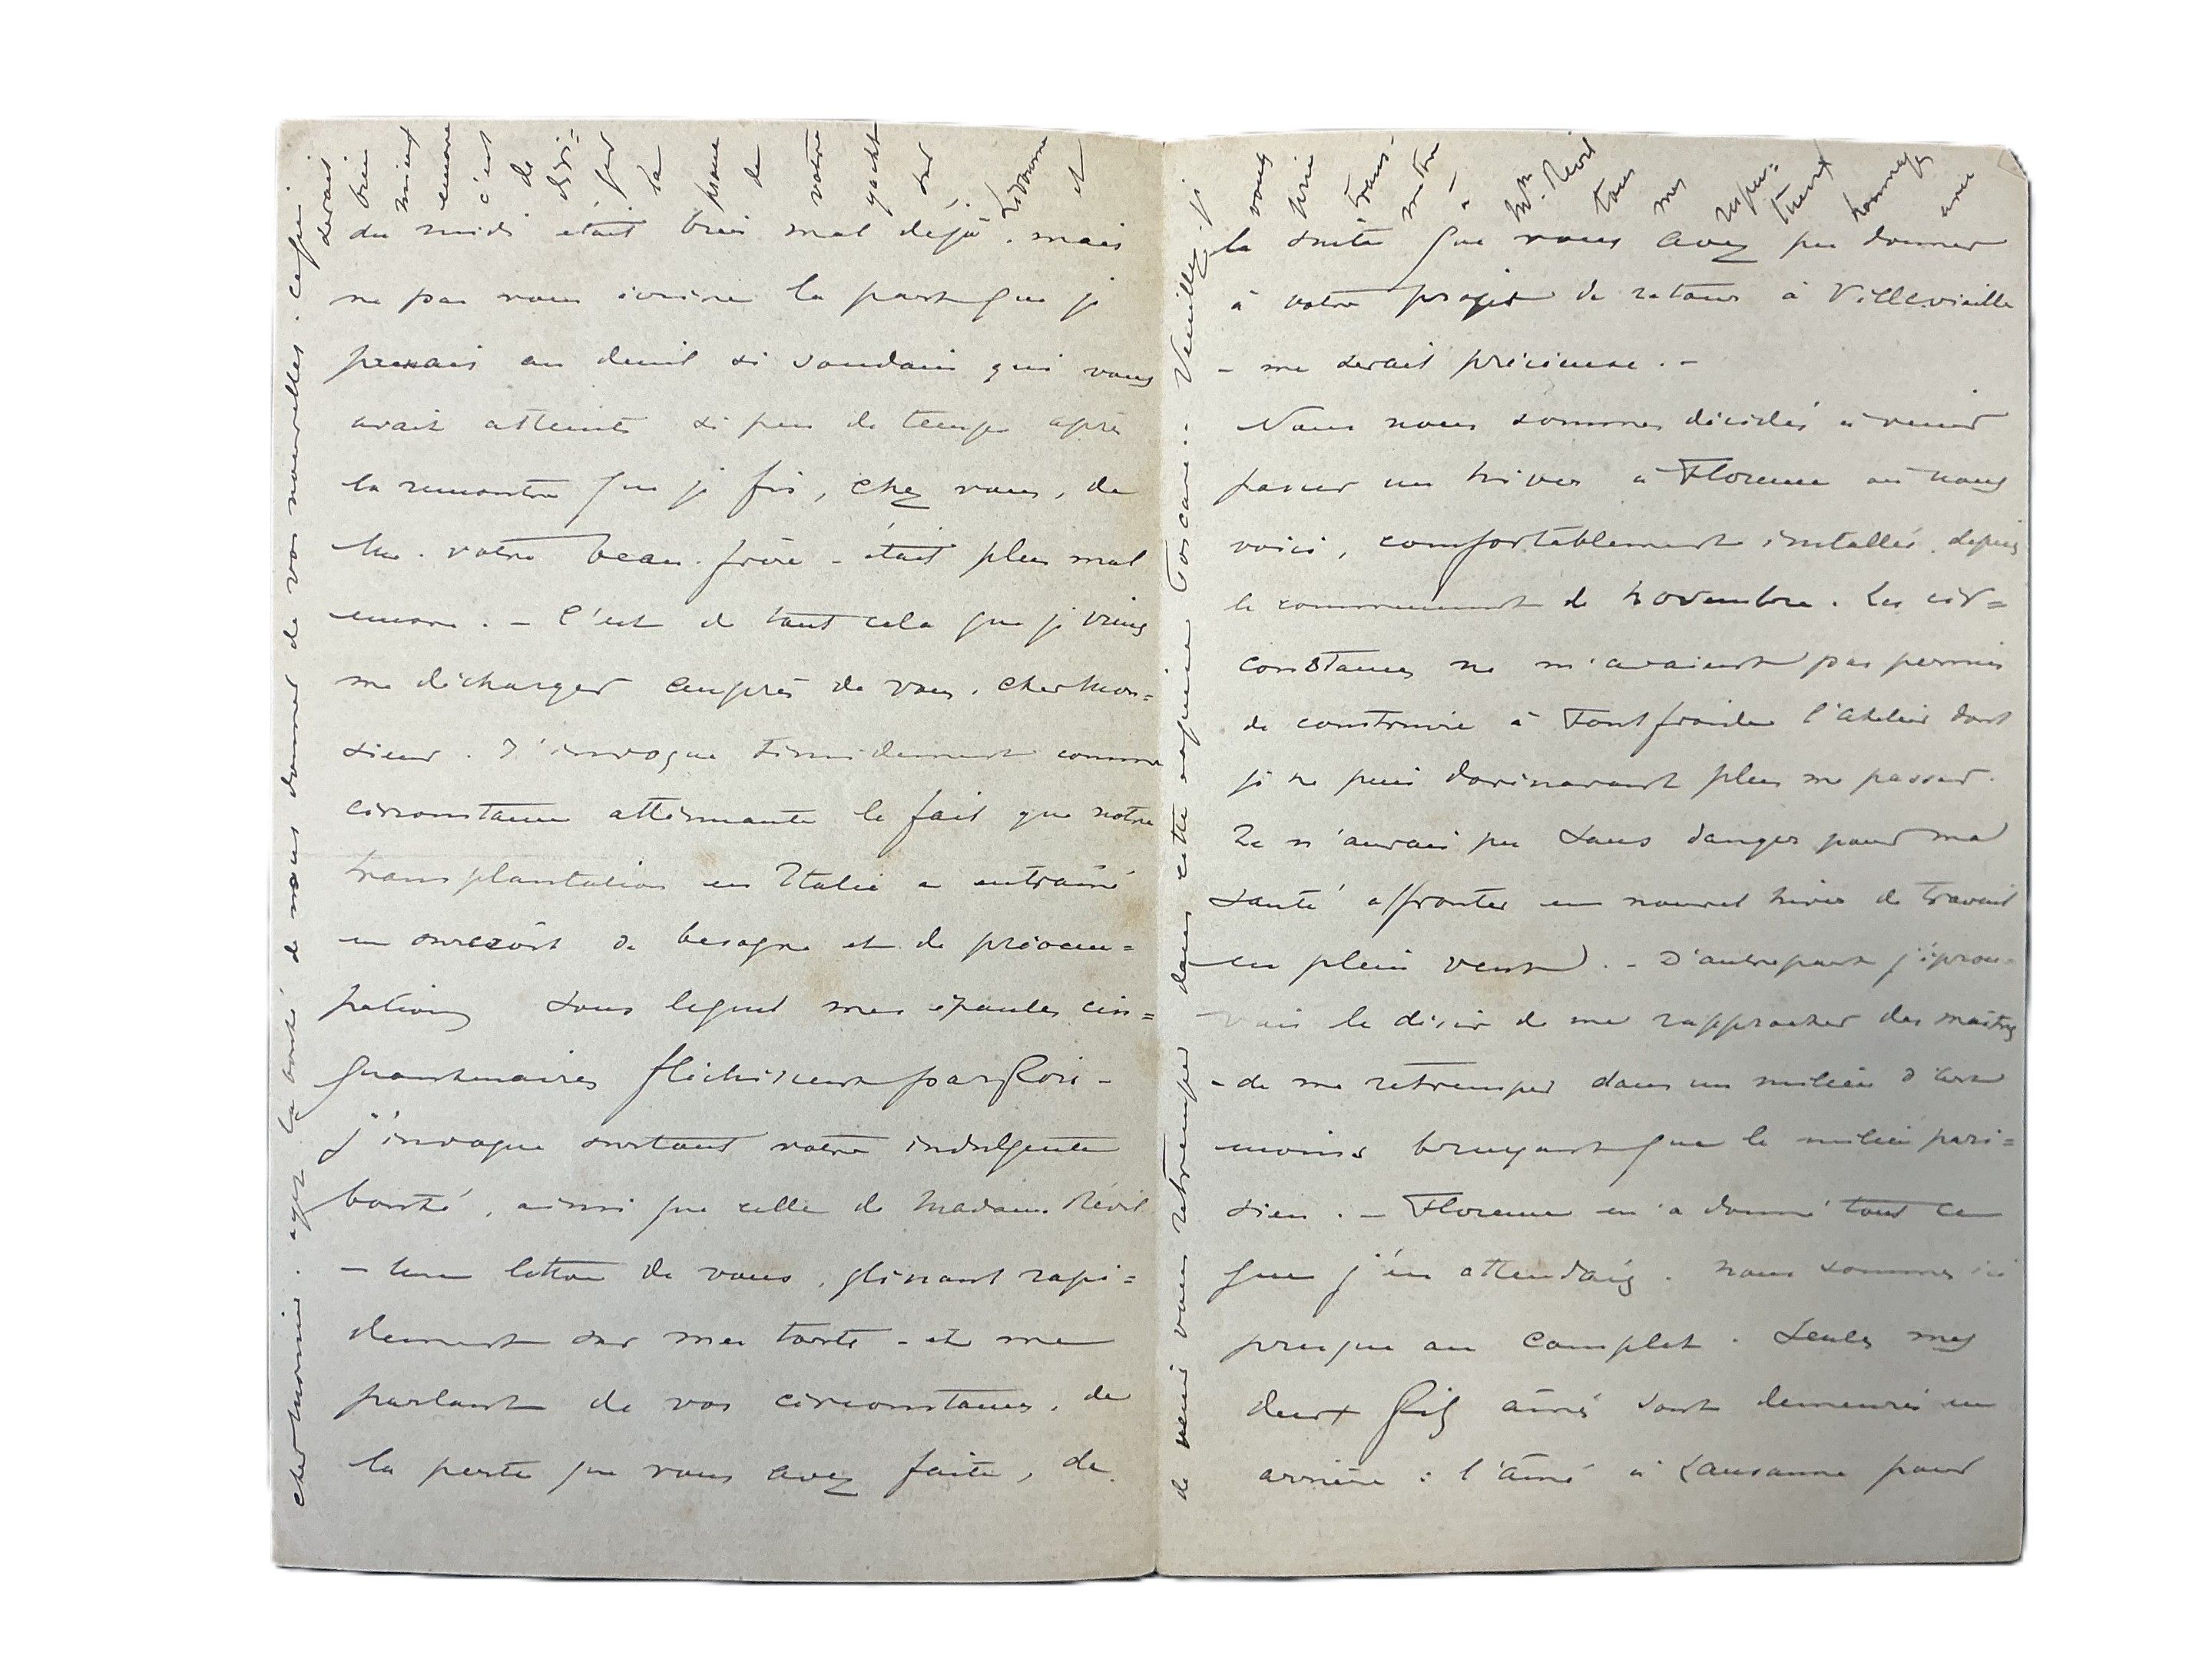 du midi était bien mal déjà. mais
ne pas vous écrire la part que je
prenais au deuil si soudain qui vous
avait atteints si peu de temps après
la rencontre que je fis, chez vous, de
Mr. votre beau-frère - était plus mal
encore. - C'est de tout cela que je viens
me décharger auprès de vous, cher Mon=
sieur. J'invoque timidement comme
circonstance atténuante le fait que notre
transplantation en Italie a entraîné
un surcroît de besogne et de préoccu=
pations sous lequel mes épaules cin=
quantenaires fléchissent parfois -
j'invoque surtout votre indulgente
bonté, ainsi que celle de Madame Révil
- Une lettre de vous, glissant rapi=
dement sur mes torts - et me
parlant de vos circonstances, de
la perte que vous avez faite, de
cher Monsieur. ayez la bonté de nous donner de vos nouvelles. ce qui
serait
bien
mieux
encore
c'est
de
diri=
ger
la
proue
de
votre
yacht
sur
Livourne
et
la suite que vous avez pu donner
à votre projet de retour à Villevieille
- me serait précieuse. -
Nous nous sommes décidés à venir
passer un hiver à Florence où nous
voici, comfortablement installés, depuis
le commencement de novembre. Les cir=
constances ne m'avaient pas permis
de construire à Fontfroide l'atelier dont
je ne puis dorénavant plus me passer.
Je n'aurais pu sans danger pour ma
santé affronter un nouvel hiver de travail
en plein vent. - D'autre part j'éprou=
vais le désir de me rapprocher des maîtres
- de me retremper dans un milieu d'art
moins bruyant que le milieu pari=
sien. - Florence m'a donné tout ce
que j'en attendais. Nous sommes ici
presque au complet. Seuls mes
deux fils aînés sont demeurés en
arrière : l'aîné à Lausanne pour
de venir vous retremper dans cette exquise Toscane. - Veuillez, je
vous
prie
trans-
mettre
à
Me. Révil
tous
mes
respec=
tueux
hommages